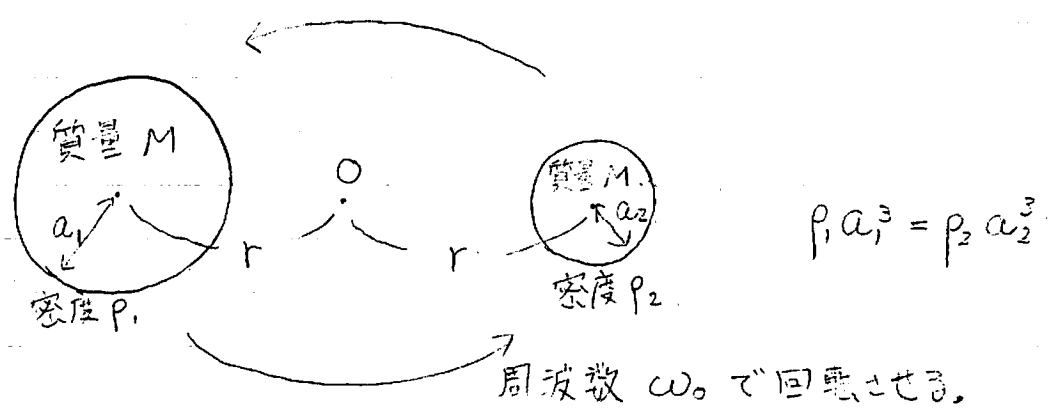 質量 M
a₁
r
密度 ρ₁
O
r
質量 M
a₂
密度 ρ₂
ρ₁a₁³ = ρ₂a₂³
周波数 ω₀ で回転させる。